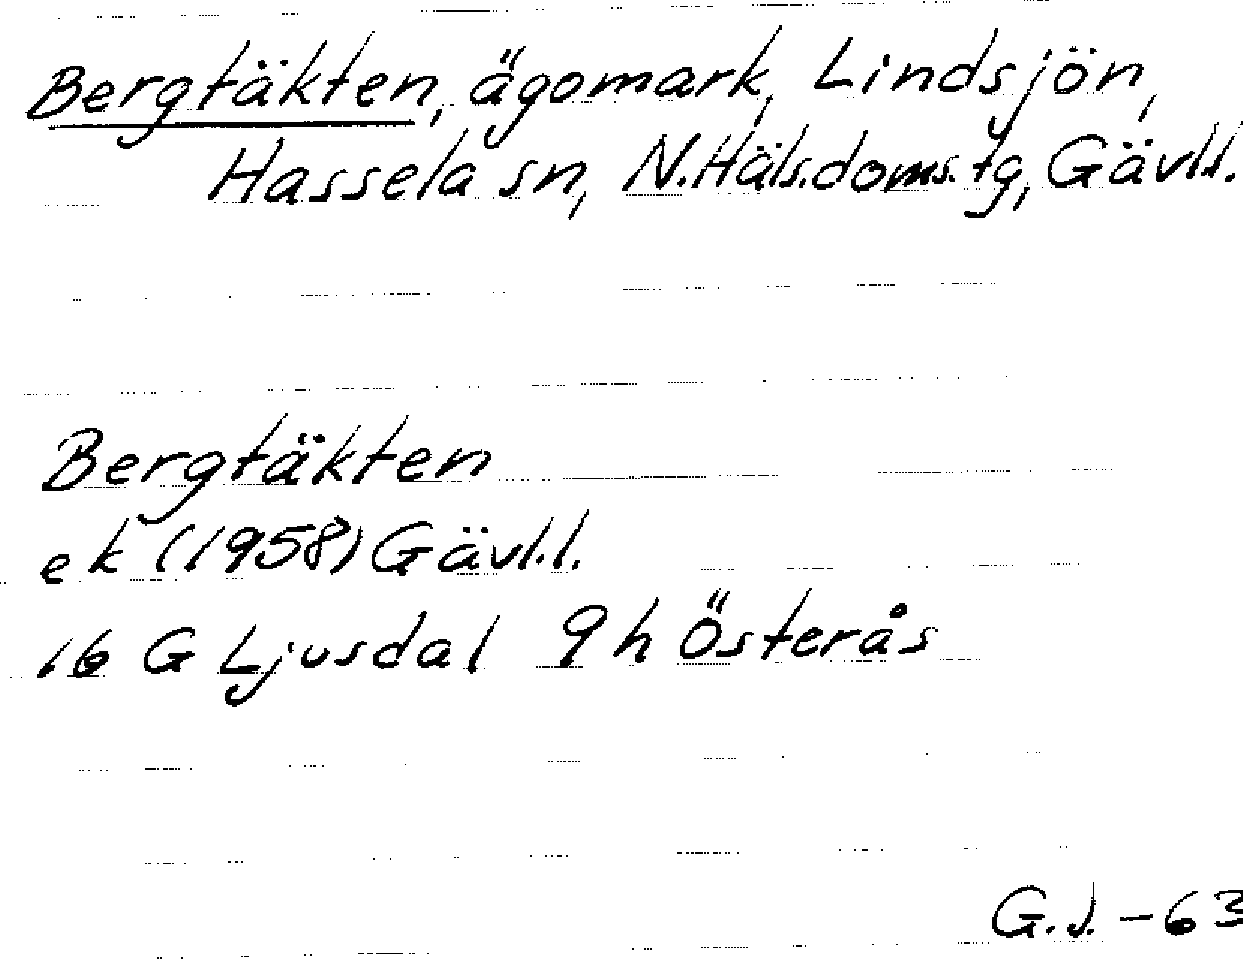 Bergtäkten, ägomark, Lindsjön,
Hassela sn, N.Häls.doms.tg, Gävl.l.
Bergtäkten
ek (1958) Gävl.l.
16 G Ljusdal 9 h Österås
G.J. - 63